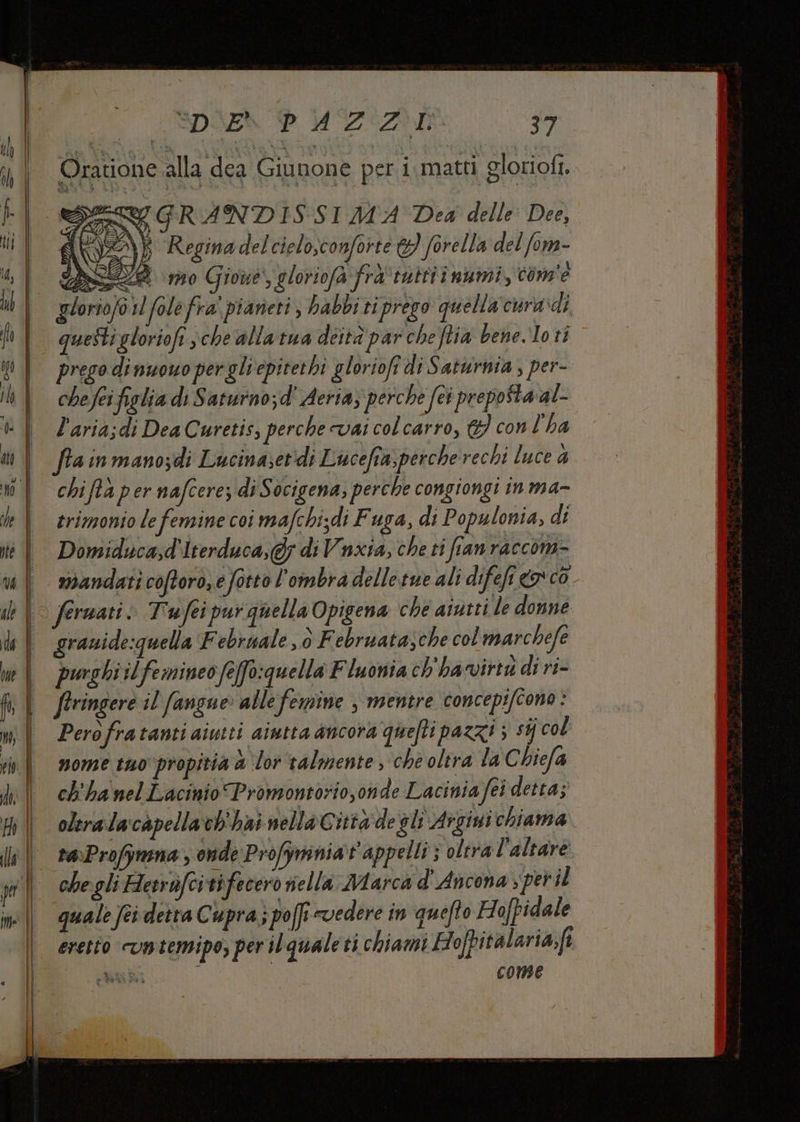 DE' PAZZI. 37
Oratione alla dea Giunone per i matti gloriosi.
GRANDISSIMA Dea delle Dee,
Regina del cielo, conforte & sorella del som-
mo Gioue, gloriosa frà tutti i numi, com'è
glorioso il sole fra' pianeti, habbi ti prego quella cura di
questi gloriosi, che alla tua deità par che stia bene. Io ti
prego di nuouo per gli epitethi gloriosi di Saturnia, per-
che sei figlia di Saturno; d'Aeria, perche sei preposta al-
l'aria; di Dea Curetis, perche vai col carro, & con l'ha
sta in mano; di Lucina, et di Lucesia, perche rechi luce à
chi stà per nascere; di Socigena, perche congiongi in ma-
trimonio le femine coi maschi; di Fuga, di Populonia, di
Domiduca, d'Iterduca, & di Vnxia, che ti sian raccom-
mandati costoro, e sotto l'ombra delle tue ali difesi & cõ
seruati. Tu sei pur quella Opigena che aiutti le donne
grauide: quella Februale, ò Februata, che col marchese
purghi il femineo sesso: quella Fluonia ch'ha virtù di ri-
stringere il sangue alle femine, mentre concepiscono:
Però fra tanti aiutti aiutta ancora questi pazzi; sij col
nome tuo propitia à lor talmente, che oltra la Chiesa
ch'ha nel Lacinio Promontorio, onde Lacinia sei detta;
oltra la capella ch'hai nella Città de gli Argiui chiama
ta Prosymna, onde Prosymnia t'appelli; oltra l'altare
che gli Hetrusci ti fecero nella Marca d'Ancona, per il
quale sei detta Cupra; possi vedere in questo Hospidale
eretto vn tempio, per il quale ti chiami Hospitalaria, sì
come